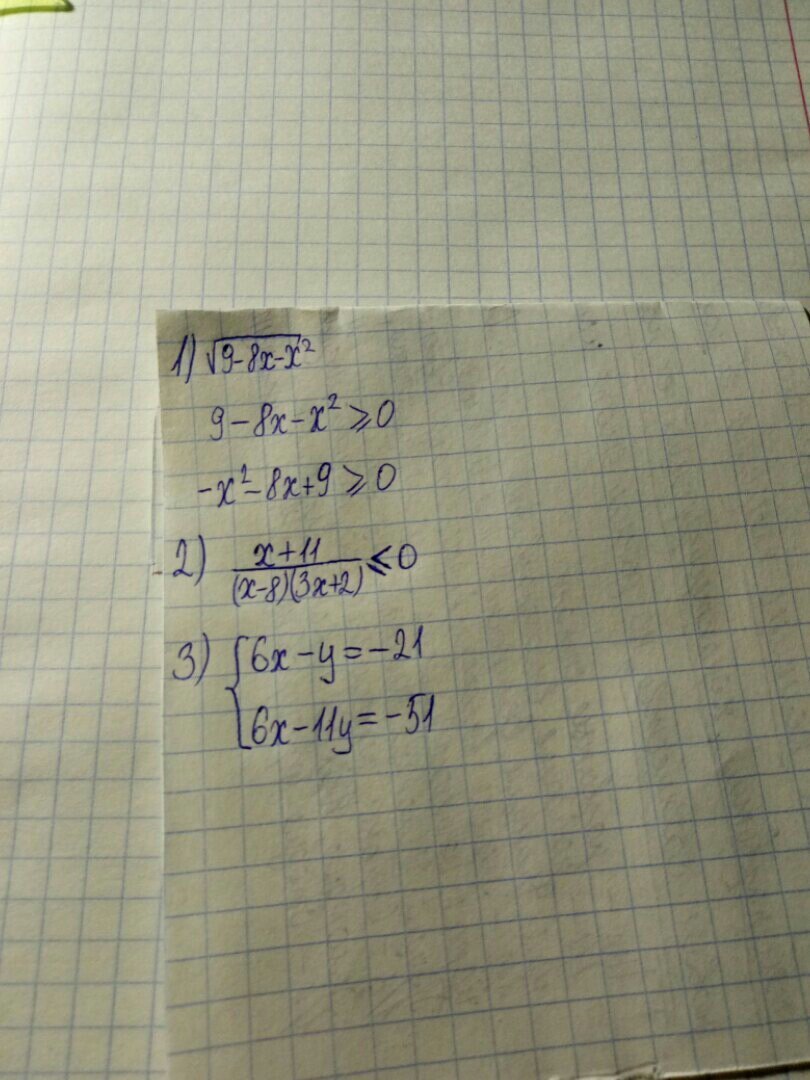 1) √9-8x-x²
9-8x-x²⩾0
-x²-8x+9⩾0
2) x+11/(x-8)(3x+2)⩽0
3) {6x-y=-21
6x-11y=-51